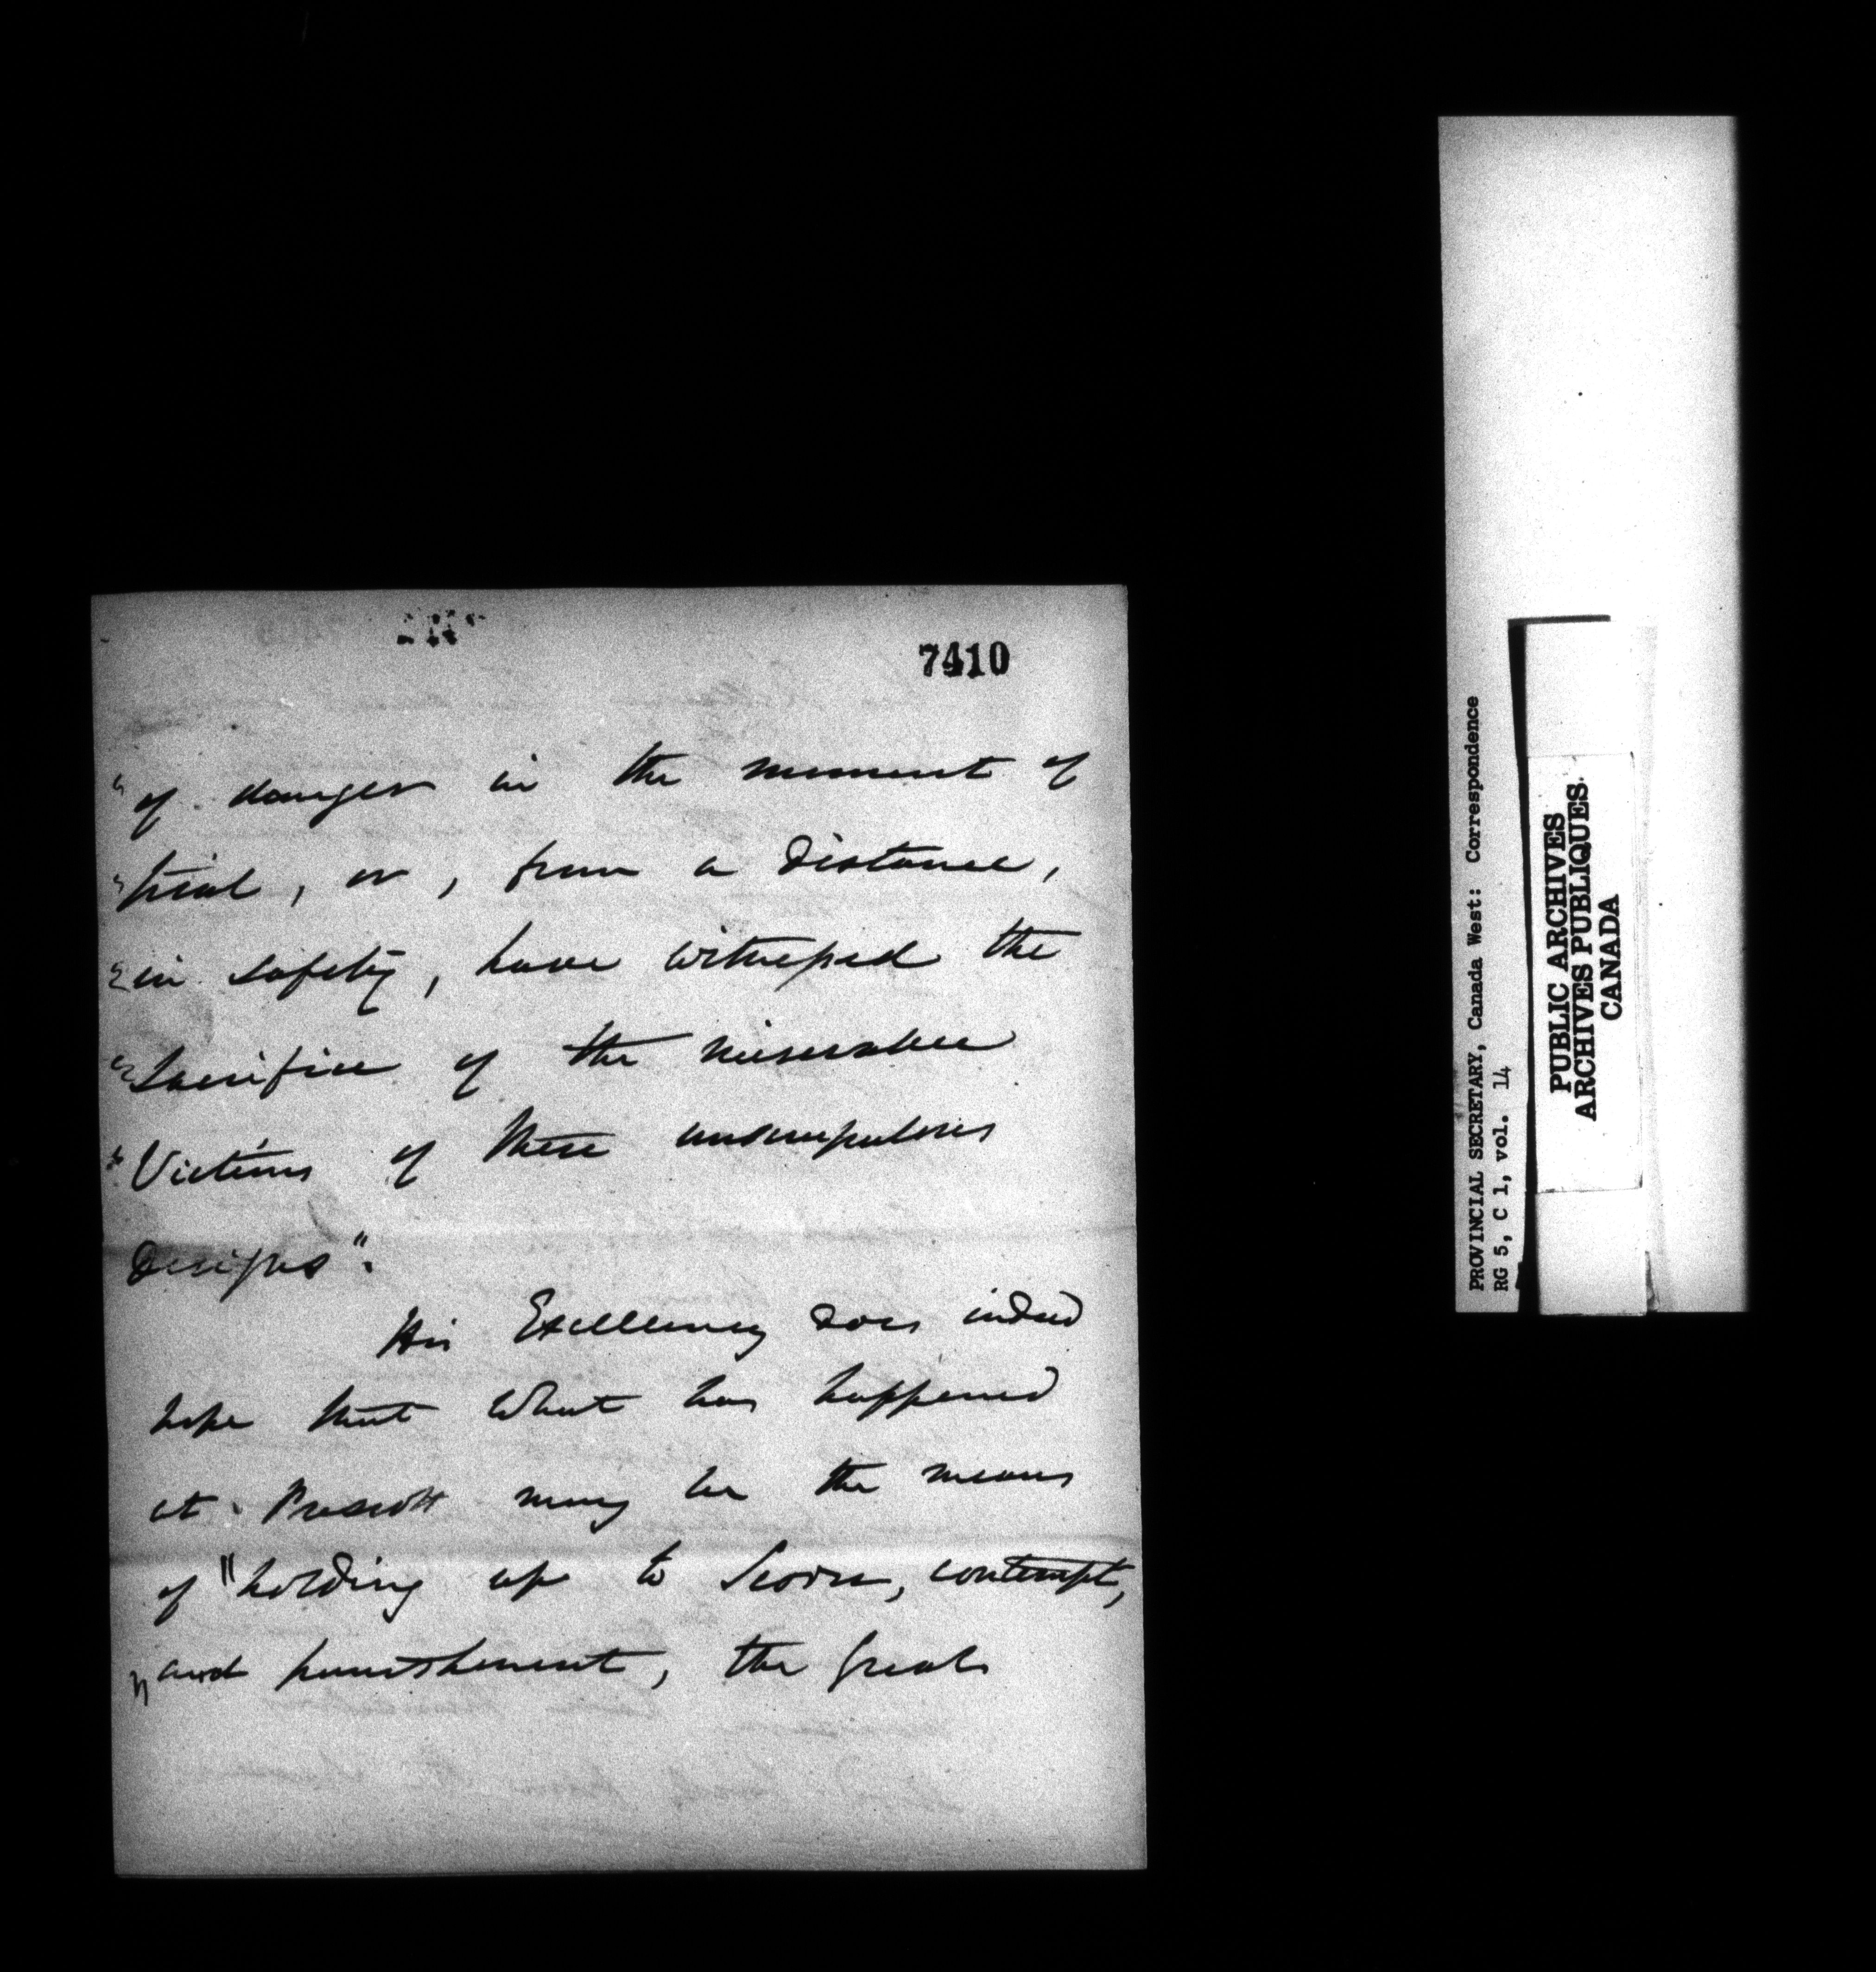 7410
"of danger in the moment of
"trial, or, from a distance,
"in safety, have witnessed the
"Sacrifice of the miserable
"Victims of these unscrupulous
Designs".
His Excellency does indeed
hope that what has happened
at Prescott may be the means
of "holding up to Scorn, contempt,
"and punishment, the great
PROVINCIAL SECRETARY, Canada West: Correspondence
RG 5, C 1, vol. 14
PUBLIC ARCHIVES
ARCHIVES PUBLIQUES
CANADA